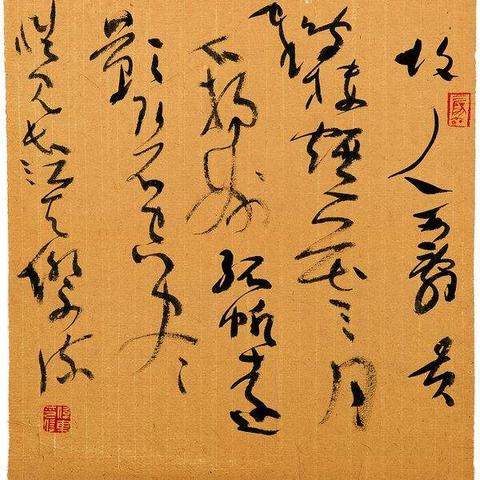 故人西辭黄
鶴樓煙花三月
下揚州孤帆遠
影碧空尽
惟見長江天際流